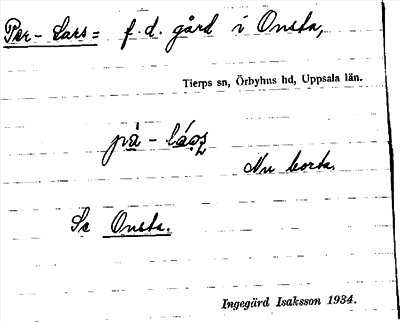 Per-Lars= f.d. gård i Onsta,
Tierps sn, Örbyhus hd, Uppsala län.
Nu borta.
Se Onsta.
Ingegärd Isaksson 1934.